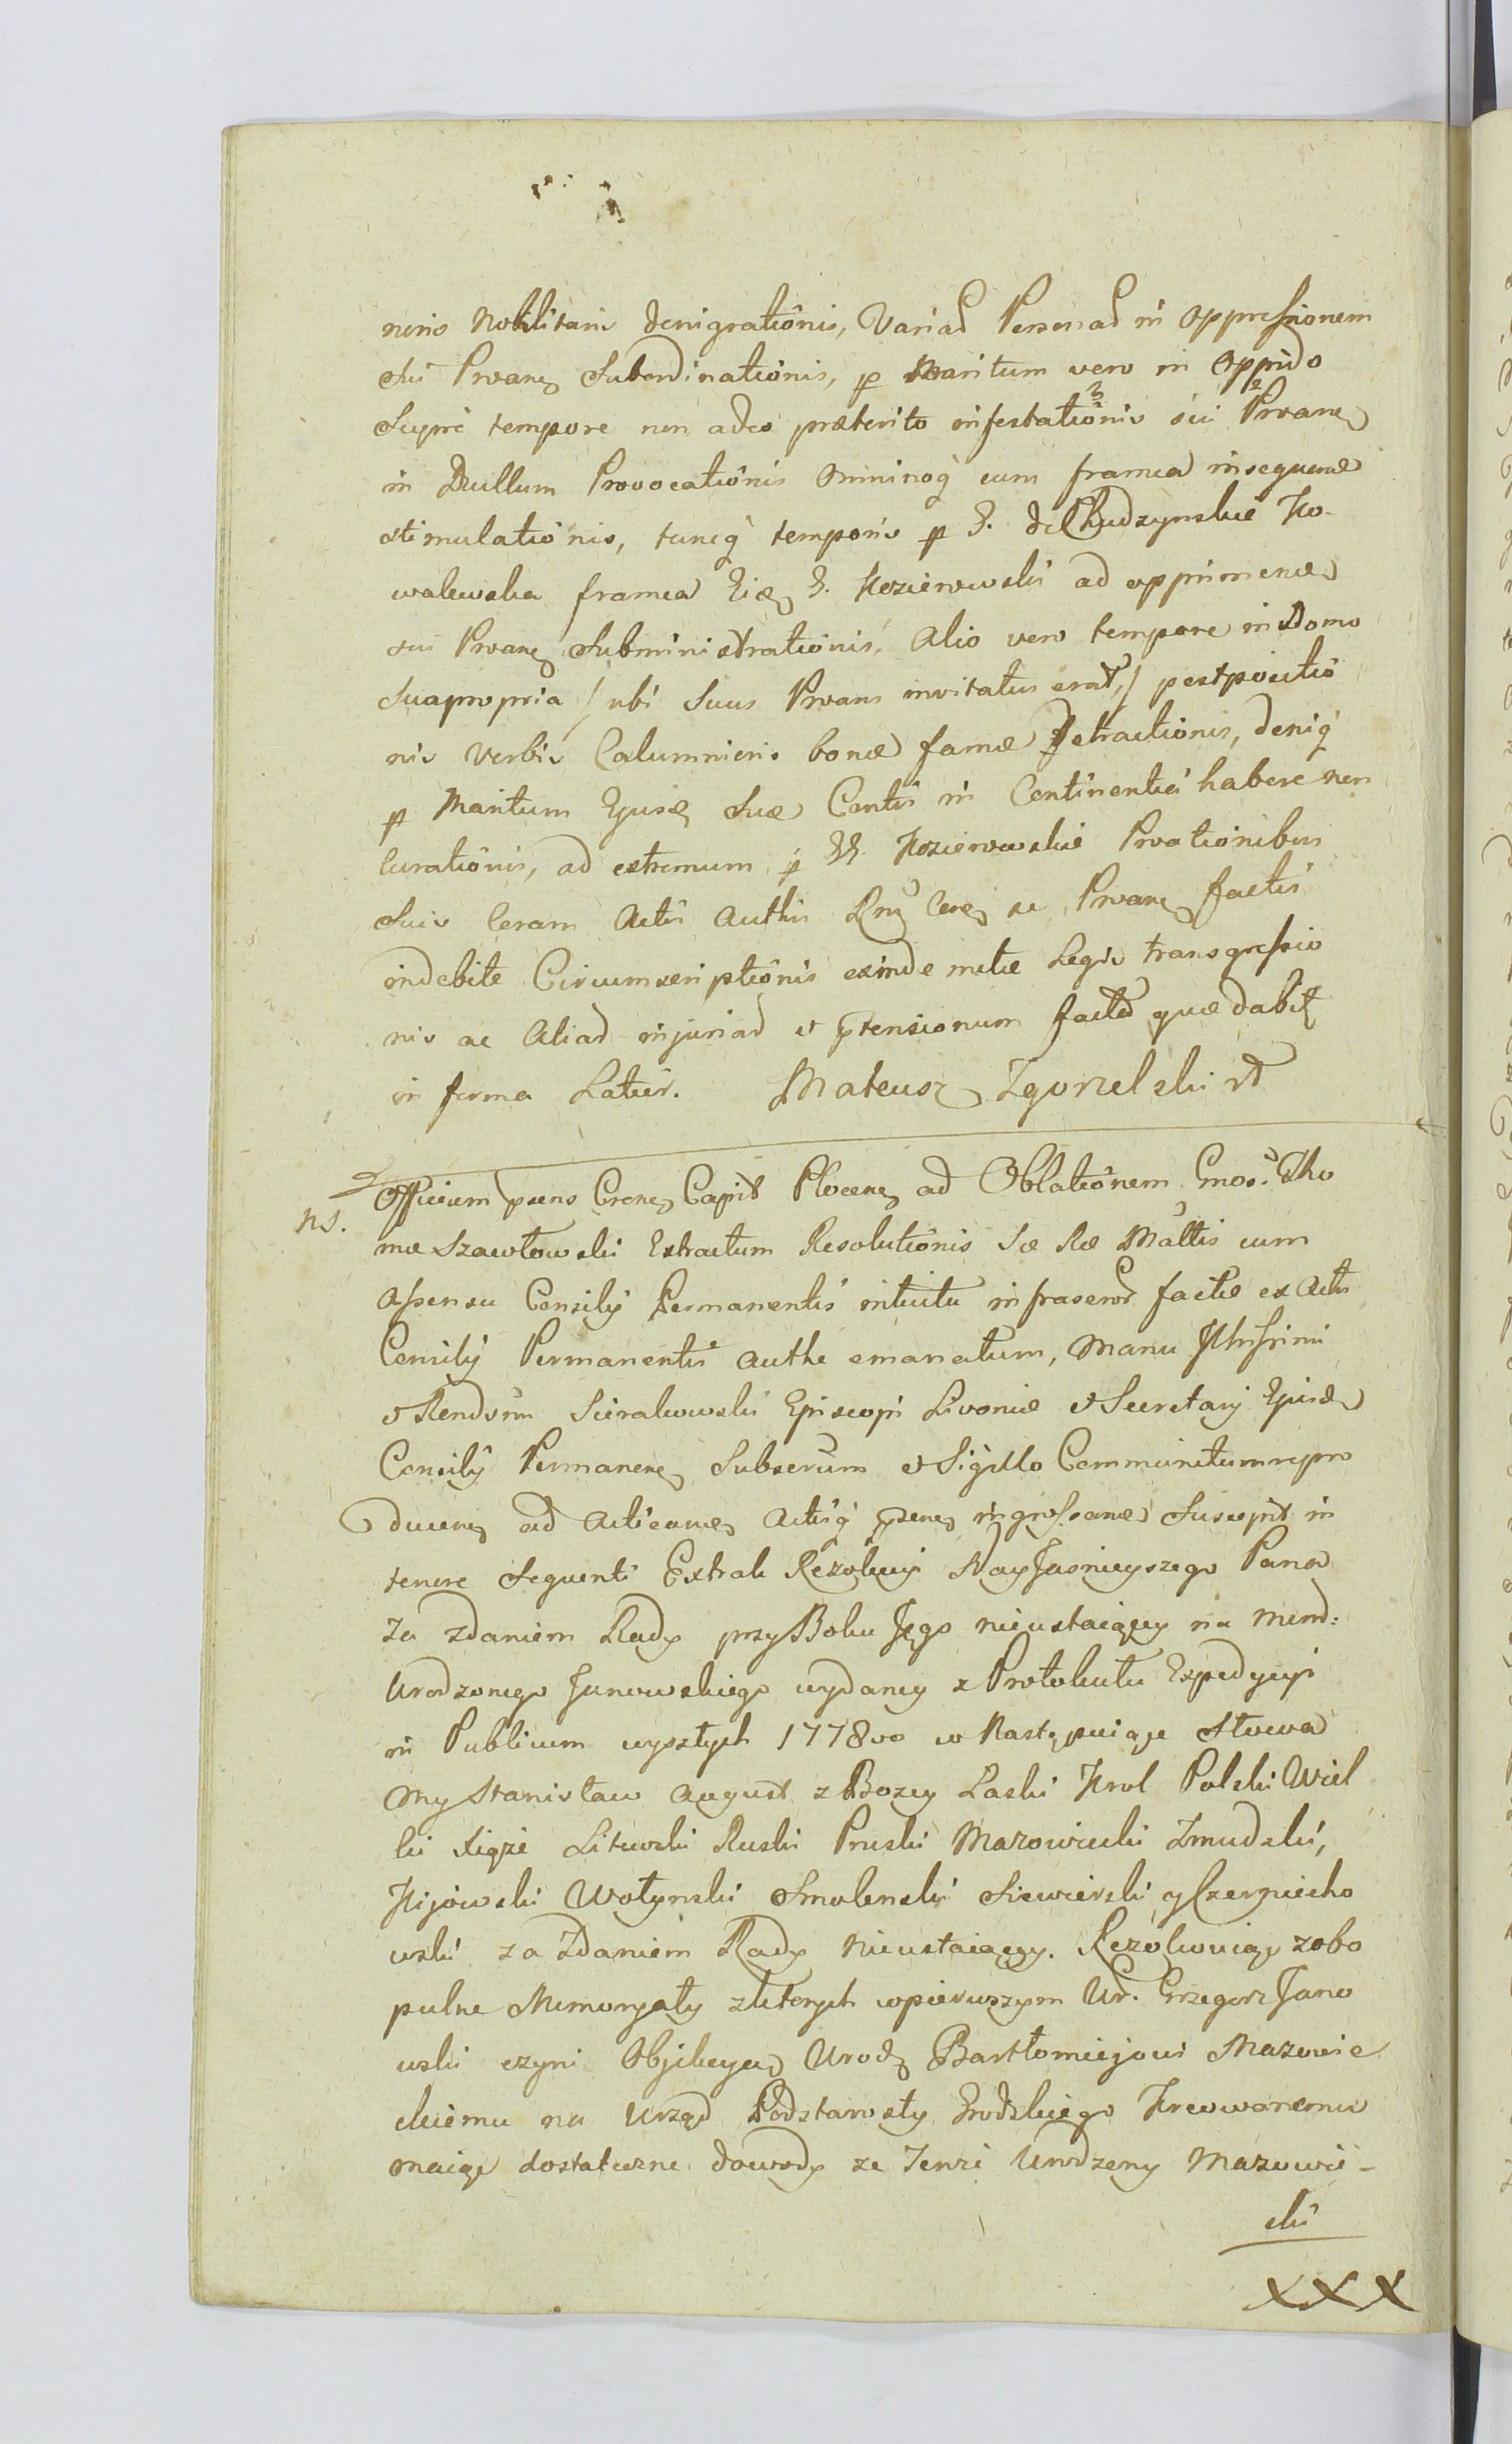 neris Nobilitaris denigrationis, Variad Personad in Oppressionem
Sui Prvane Subordinationis, p Maritum vero in Oppido
Serpc tempore non adeo præterito infestationis sui Prvane
in Duellum Provocationis Ominoq cum framea insequend
stimulationis, tuncq temporis p G. de Chudzynskie Ko-
walewska framea Eid G. Kozierowski ad opprimend
sui Prvane Subministrationis, Alio vero tempore in Domo
Sua propria / ubi Suus Prvans invitatus erat, / postpositio
nis Verbis Calumnioris bonæ famæ Detractionis, deniq
p Maritum Ejusd Suæ Contis in Continentia habere non
curationis, ad extremum p GG. Kozierowskie Prvationibus
Suis Coram Actis Authis Cere se Prvane factis
indebite Circumscriptionis exinde Legis transgressio
nis ac Aliad injuriad et ptensionum factd quæ dabit
in forma Latior. Mateusz Zgorzelski
Officium psens Crene Capit Plocene ad Oblationem Gnosi Tho
ns.
mæ Szawłowski Extractum Resolutionis Sæ Ræ Mattis cum
Assensu Consilij Permanentis intuitu infrascrod factæ ex Actis
Consilij Permanentis Authe emanatum, Manu Illrissimi
et Rendsmi Sierakowski Episcopi Livoniæ et Secretarij Ejusd
Consilij Permanene Subscrum et Sigillo Communitum repro
ducene ad Acticand Actisq psene ingrossand Suscepit in
tenore Sequenti Extrakt Rezolucyi Nayjasnieyszego Pana
Za zdaniem Rady przy Boku Jego nieustaiącey na Mem:
Urodzonego Janowskiego wydaney z Protokułu Expedycyi
in Publicum wyszłych 1778vo w Następuiące Słowa
My Stanisław August z Bozey Laski Krol Polski Wiel
ki Xiąże Litewski Ruski Pruski Mazowiecki Zmudzki,
Kijowski Wołynski Smolenski Siewierski y Czerniecho
wski za Zdaniem Rady Nieustaiącey. Rezolwuiąc zobo
pulne Memoryały z ktorych w pierwszym Ur. Grzegorz Jano
wski czyni Objekcyą Urodz Bartłomiejowi Mazowie
ckiemu na Urząd Podstarosty Grodzkiego Kreowanemu
maiąc dostateczne dowody ze Tenże Urodzony Mazowie-
cki
XXX